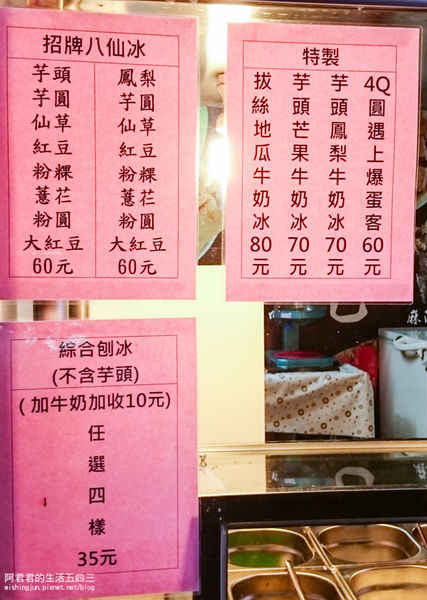 招牌八仙冰
芋頭
芋圓
仙草
紅豆
粉粿
薏芢
粉圓
大紅豆
60元
鳳梨
芋圓
仙草
紅豆
粉粿
薏芢
粉圓
大紅豆
60元
特製
拔絲地瓜牛奶冰80元
芋頭芒果牛奶冰70元
芋頭鳳梨牛奶冰70元
4Q圓遇上爆蛋客60元
綜合刨冰
(不含芋頭)
(加牛奶加收10元)
任選四樣
35元
麻
阿君君的生活五四三
wishingjun.pixnet.net/blog